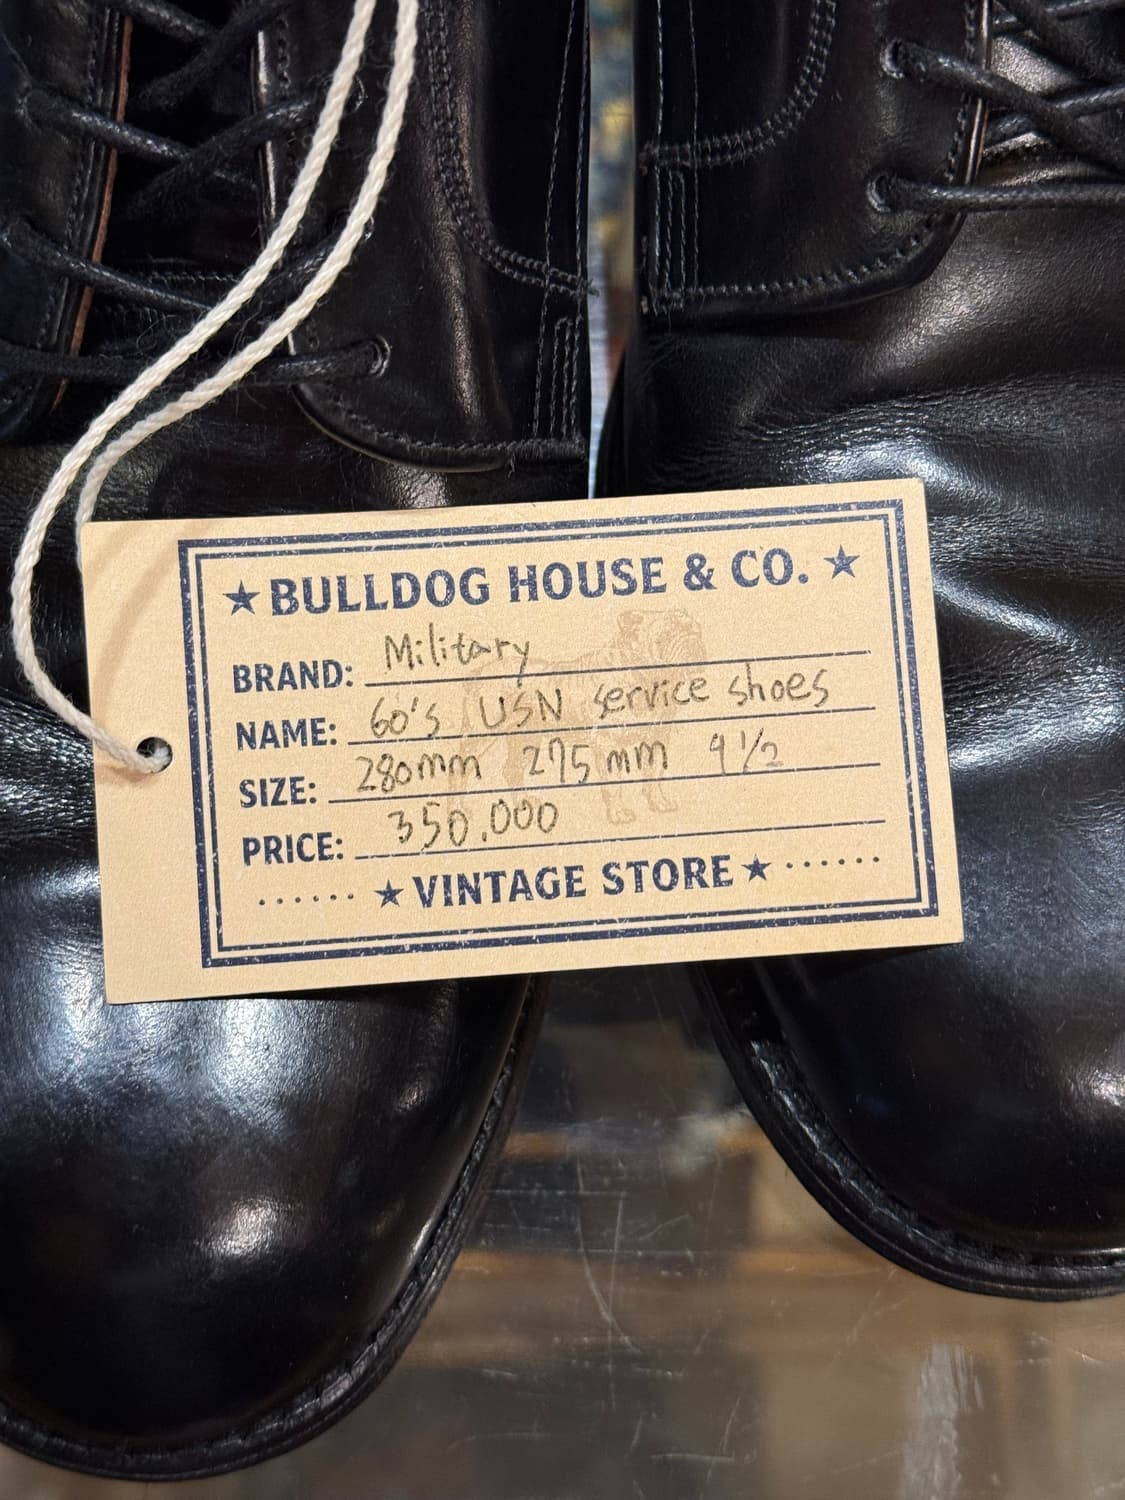 ★BULLDOG HOUSE & CO.★
BRAND: Military
NAME: 60's USN service shoes
SIZE: 280mm 275mm 9 1/2
PRICE: 350.000
······★VINTAGE STORE★······